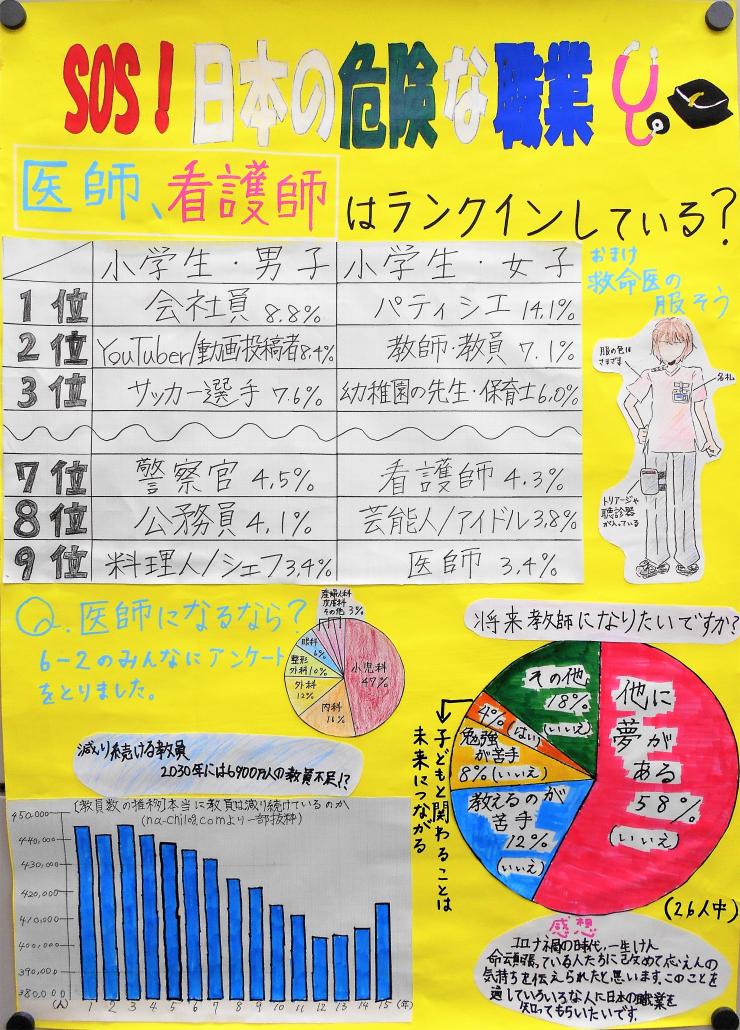 SOS!日本の危険な職業
医師、看護師はランクインしている?
小学生・男子 小学生・女子
1位 会社員 8.8% パティシエ 14.1%
2位 YouTuber/動画投稿者8.4% 教師・教員 7.1%
3位 サッカー選手 7.6% 幼稚園の先生・保育士6.0%
7位 警察官 4.5% 看護師 4.3%
8位 公務員 4.1% 芸能人/アイドル3.8%
9位 料理人/シェフ3.4% 医師 3.4%
おまけ
救命医の
服そう
服の色は
さまざま
名札
トリアージや
聴診器
が入っている
Q.医師になるなら?
6-2のみんなにアンケート
をとりました。
産婦人科
皮膚科
その他 3%
眼科
6%
整形
外科10%
外科
12%
内科
16%
小児科
47%
将来教師になりたいですか?
他に
夢が
ある
58%
(いいえ)
その他
18%
(いいえ)
4%(はい)
勉強
が苦手
8%(いいえ)
教えるのが
苦手
12%
(いいえ)
(26人中)
子どもと関わることは
未来につながる
減り続ける教員
2030年には6900万人の教員不足!?
[教員数の推移]本当に教員は減り続けているのか
(na-chilog.comより一部抜粋)
450,000
440,000
430,000
420,000
410,000
400,000
390,000
380,000
(人) 1 2 3 4 5 6 7 8 9 10 11 12 13 14 15(年)
感想
コロナ禍の時代、一生けん
命頑張っている人たちに改めて応えんの
気持ちを伝えられたと思います。このことを
通していろいろな人に日本の職業を
知ってもらいたいです。